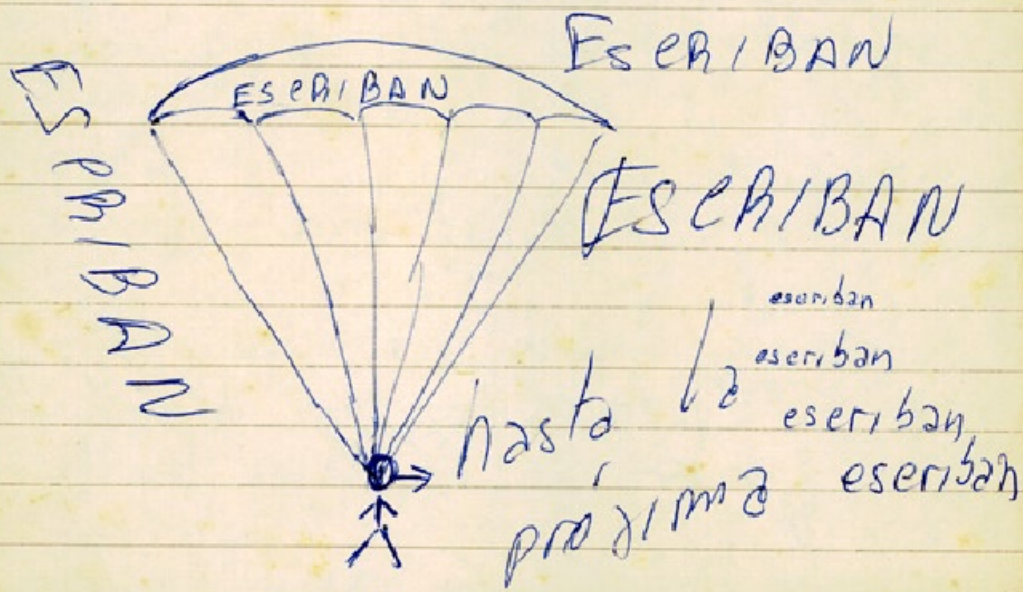 ESCRIBAN
ESCRIBAN
ESCRIBAN
ESCRIBAN
escriban
escriban
escriban
escriban
hasta la
próxima